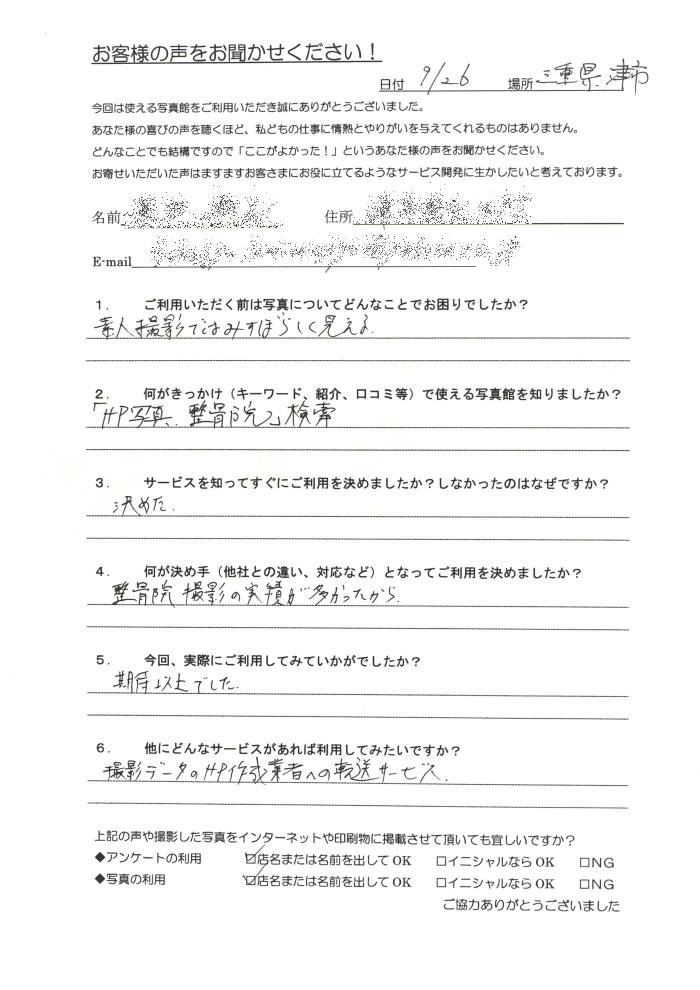 お客様の声をお聞かせください！
日付 9/26 場所 三重県津市
今回は使える写真館をご利用いただき誠にありがとうございました。
あなた様の喜びの声を聴くほど、私どもの仕事に情熱とやりがいを与えてくれるものはありません。
どんなことでも結構ですので「ここがよかった！」というあなた様の声をお聞かせください。
お寄せいただいた声はますますお客さまにお役に立てるようなサービス開発に生かしたいと考えております。
名前 住所
E-mail
１． ご利用いただく前は写真についてどんなことでお困りでしたか？
素人撮影ではみすぼらしく見える.
２． 何がきっかけ（キーワード、紹介、口コミ等）で使える写真館を知りましたか？
「HP写真、整骨院」検索
３． サービスを知ってすぐにご利用を決めましたか？しなかったのはなぜですか？
決めた.
４． 何が決め手（他社との違い、対応など）となってご利用を決めましたか？
整骨院撮影の実績が多かったから.
５． 今回、実際にご利用してみていかがでしたか？
期待以上でした.
６． 他にどんなサービスがあれば利用してみたいですか？
撮影データのHP作成業者への転送サービス.
上記の声や撮影した写真をインターネットや印刷物に掲載させて頂いても宜しいですか？
◆アンケートの利用 ☑店名または名前を出して OK □イニシャルなら OK □NG
◆写真の利用 ☑店名または名前を出して OK □イニシャルなら OK □NG
ご協力ありがとうございました